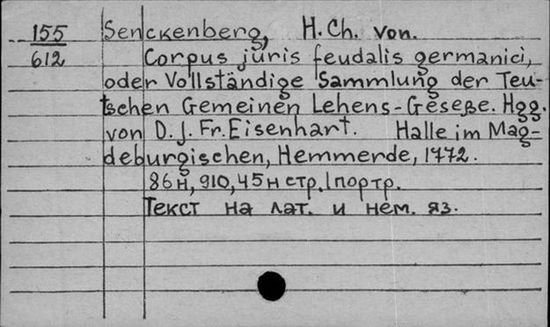 155 Senckenberg, H. Ch. von.
612 Corpus juris feudalis germanici,
oder Vollständige Sammlung der Teu-
tschen Gemeinen Lehens-Geseße. Hgg.
von D. J. Fr. Eisenhart. Halle im Mag-
deburgischen, Hemmerde, 1772.
86н, 910, 45н стр. 1 портр.
Текст на лат. и нем. яз.